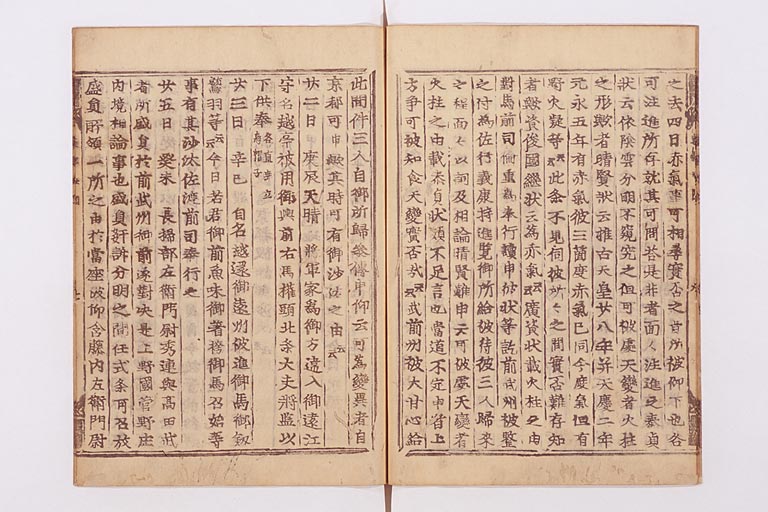 之去四日赤氣事可相尋實否之旨所被仰下也各
可注進所存就其可問答是非者面々注進之泰貞
状云依陰雲分明不窺究之但可被處天變者火柱
之形歟者晴賢状云推古天皇廿八年并天慶二年
元永五年有赤氣彼三箇度赤氣已同今度氣但有
野火疑等云々此条不見伺彼所々之間實否難存知
者歟資俊國継状云為赤氣云々廣資状載火柱之由
對馬前司倫重為奉行讀申彼状等訖前武州被鑒
之付為佐行義康持進覧御所給彼侍被三人歸来
之程面々以詞及相論晴賢難申云可被處天變者
火柱之由載泰貞状頗不足言也當道不定申者上
方争可被知食天變實否哉云々武前州被大甘心給
此間件三人自御所歸參傳身仰云可為變異者自
京都可申歟其時可有御沙汰之由云々
廿二日 庚辰天晴 將軍家為御方違入御遠江
守名越亭被用御輿前右馬權頭北条大夫將監以
下供奉各直垂立烏帽子
廿三日 辛巳 自名越還御遠州被進御馬御釼
鷲羽等云々今日若君御前魚味御著袴御馬召始等
事有其沙汰佐渡前司奉行之
廿五日 癸未 長掃部左衛門尉秀連與高田武
者所盛員於前武州御前遂對决是上野國菅野庄
内境相論事也盛員奸訴分明之間任式条可召放
盛員所領一所之由於當座被仰含藤内左衛門尉